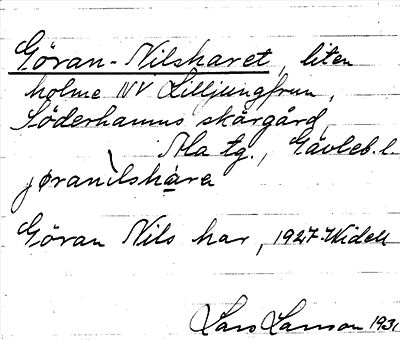 Göran-Nilsharet, liten
holme NV Lilljungfrun,
Söderhamns skärgård,
Ala tg., Gävleb. l.
jøranìlshára
Göran Nils har, 1927 Widell
Lars Larsson 1931